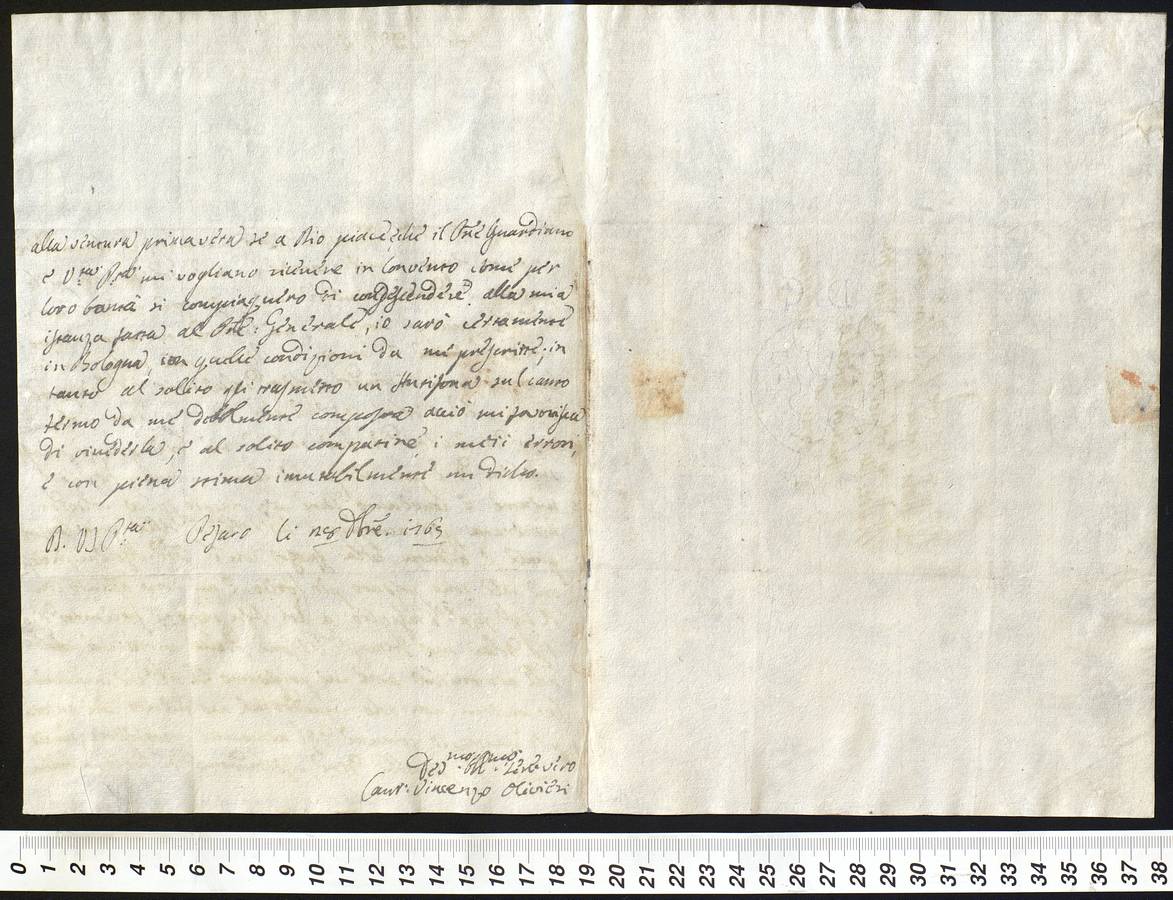 alla ventura primavera se a Dio piace, e che il Pre Guardiano
e V.ra P.tà mi vogliano ricevere in Convento come per
loro bontà si compiaquero di condescendere alla mia
istanza fatta al Pre: Generale, io sarò certamente
in Bologna, con quelle condizioni da me prescritte; in
tanto al solito gli trasmetto un Antifona sul canto
fermo da me debolmente composta acciò mi favorisca
di vinderla, e al solito compatire i miei errori,
e con piena stima imutabilmente mi dichо.
D. V. P.tà Pesaro li 28 Xbre. 1763
Dev.mo Obb.mo Serv vero
Cant.r Vincenzo Olivieri
0 1 2 3 4 5 6 7 8 9 10 11 12 13 14 15 16 17 18 19 20 21 22 23 24 25 26 27 28 29 30 31 32 33 34 35 36 37 38